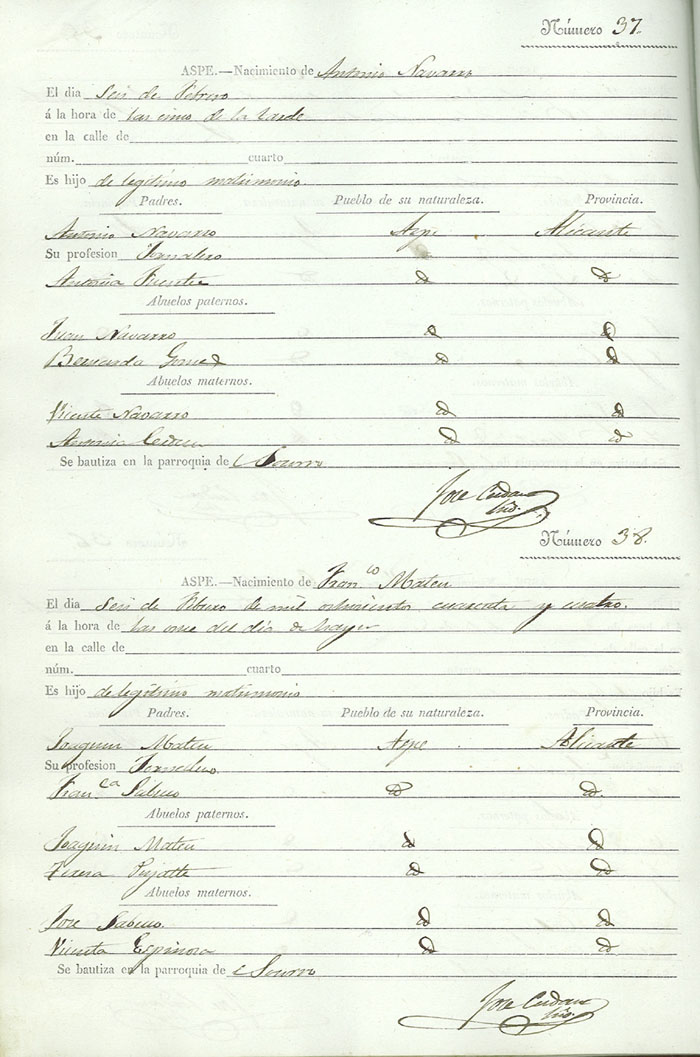 Número 37.
ASPE.—Nacimiento de Antonio Navarro
El dia Seis de Febrero
á la hora de las cinco de la tarde
en la calle de
núm. cuarto
Es hijo de legítimo matrimonio
Padres. Pueblo de su naturaleza. Provincia.
Antonio Navarro Azpe Alicante
Su profesion Jornalero
Antonia Puente id id
Abuelos paternos.
Juan Navarro id id
Bernarda Gomez id id
Abuelos maternos.
Vicente Navarro id id
Antonia id id
Se bautiza en la parroquia de Socorro
Jose
Número 38.
ASPE.—Nacimiento de Franco Mateu
El dia Seis de Febrero de mil ochociento cuarenta y cuatro.
á la hora de las once del dia de hayer
en la calle de
núm. cuarto
Es hijo de legítimo matrimonio
Padres. Pueblo de su naturaleza. Provincia.
Joaquin Mateu Azpe Alicante
Su profesion Jornalero.
Franca Sabuco id id.
Abuelos paternos.
Joaquin Mateu id id
Teresa Pujalte id id
Abuelos maternos.
Jose Sabuco. id id
Vicenta Espinosa id id
Se bautiza en la parroquia de Socorro
Jose